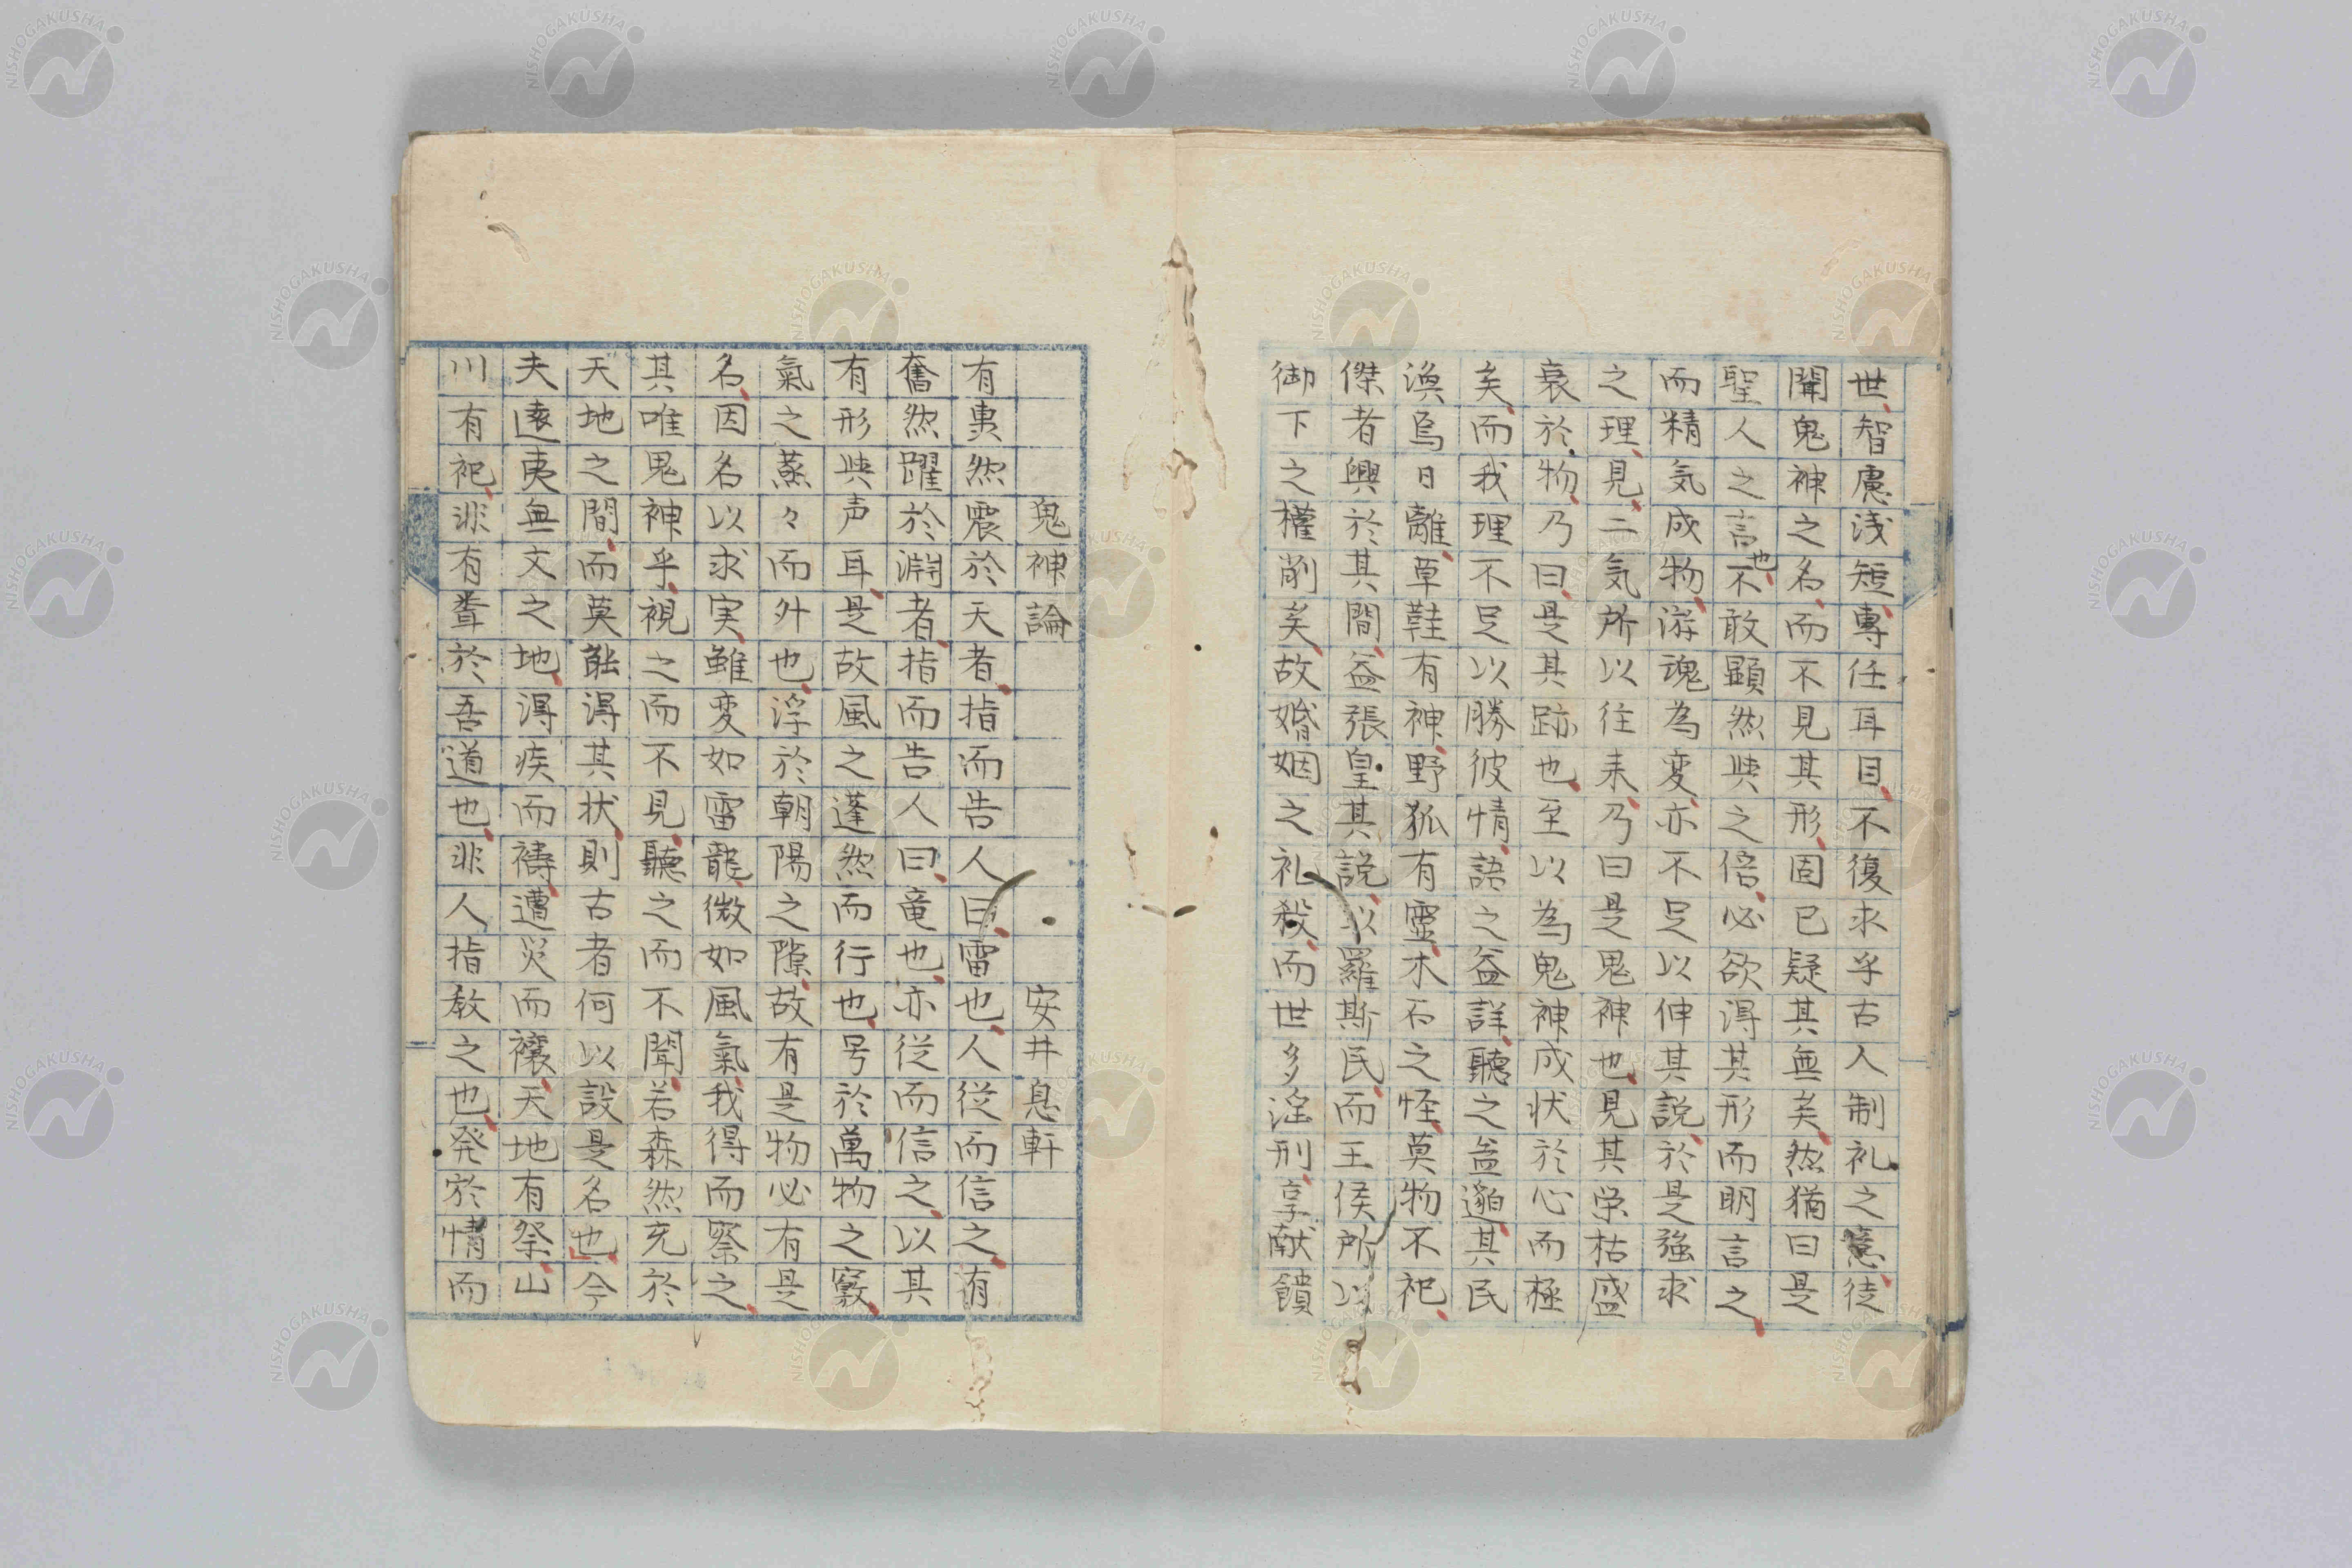 世智慮浅短專任耳目不復求乎古人制礼之意徒
聞鬼神之名而不見其形固已疑其無矣然猶曰是
聖人之言也不敢顕然與之倍必欲淂其形而明言之
而精気成物游魂為変亦不足以伸其説於是強求
之理見二気所以往来乃曰是鬼神也見其栄枯盛
衰於物乃曰是其跡也至以為鬼神成状於心而極
矣而我理不足以勝彼情語之益詳聽之益邈其民
渙烏日離草鞋有神野狐有霊木石之怪莫物不祀
傑者興於其間益張皇其説以羅斯民而王侯所以
御下之權削矣故婚姻之礼殺而世多淫刑享献饋
鬼神論 安井息軒
有然震於天者指而告人曰雷也人従而信之有
奮然躍於淵者指而告人曰竜也亦従而信之以其
有形與声耳是故風之蓬然而行也号於萬物之竅
氣之蒸々而外也浮於朝陽之隙故有是物必有是
名因名以求実雖変如雷龍微如風氣我得而察之
其唯鬼神乎視之而不見聽之而不聞若森然充於
天地之間而莫能淂其状則古者何以設是名也今
夫遠夷無文之地淂疾而祷遭災而禳天地有祭山
川有祀非有於吾道也非人指教之也発於情而